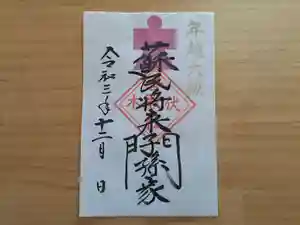 年越大祓
蘇民将来子孫家門
令和三年十二月 日